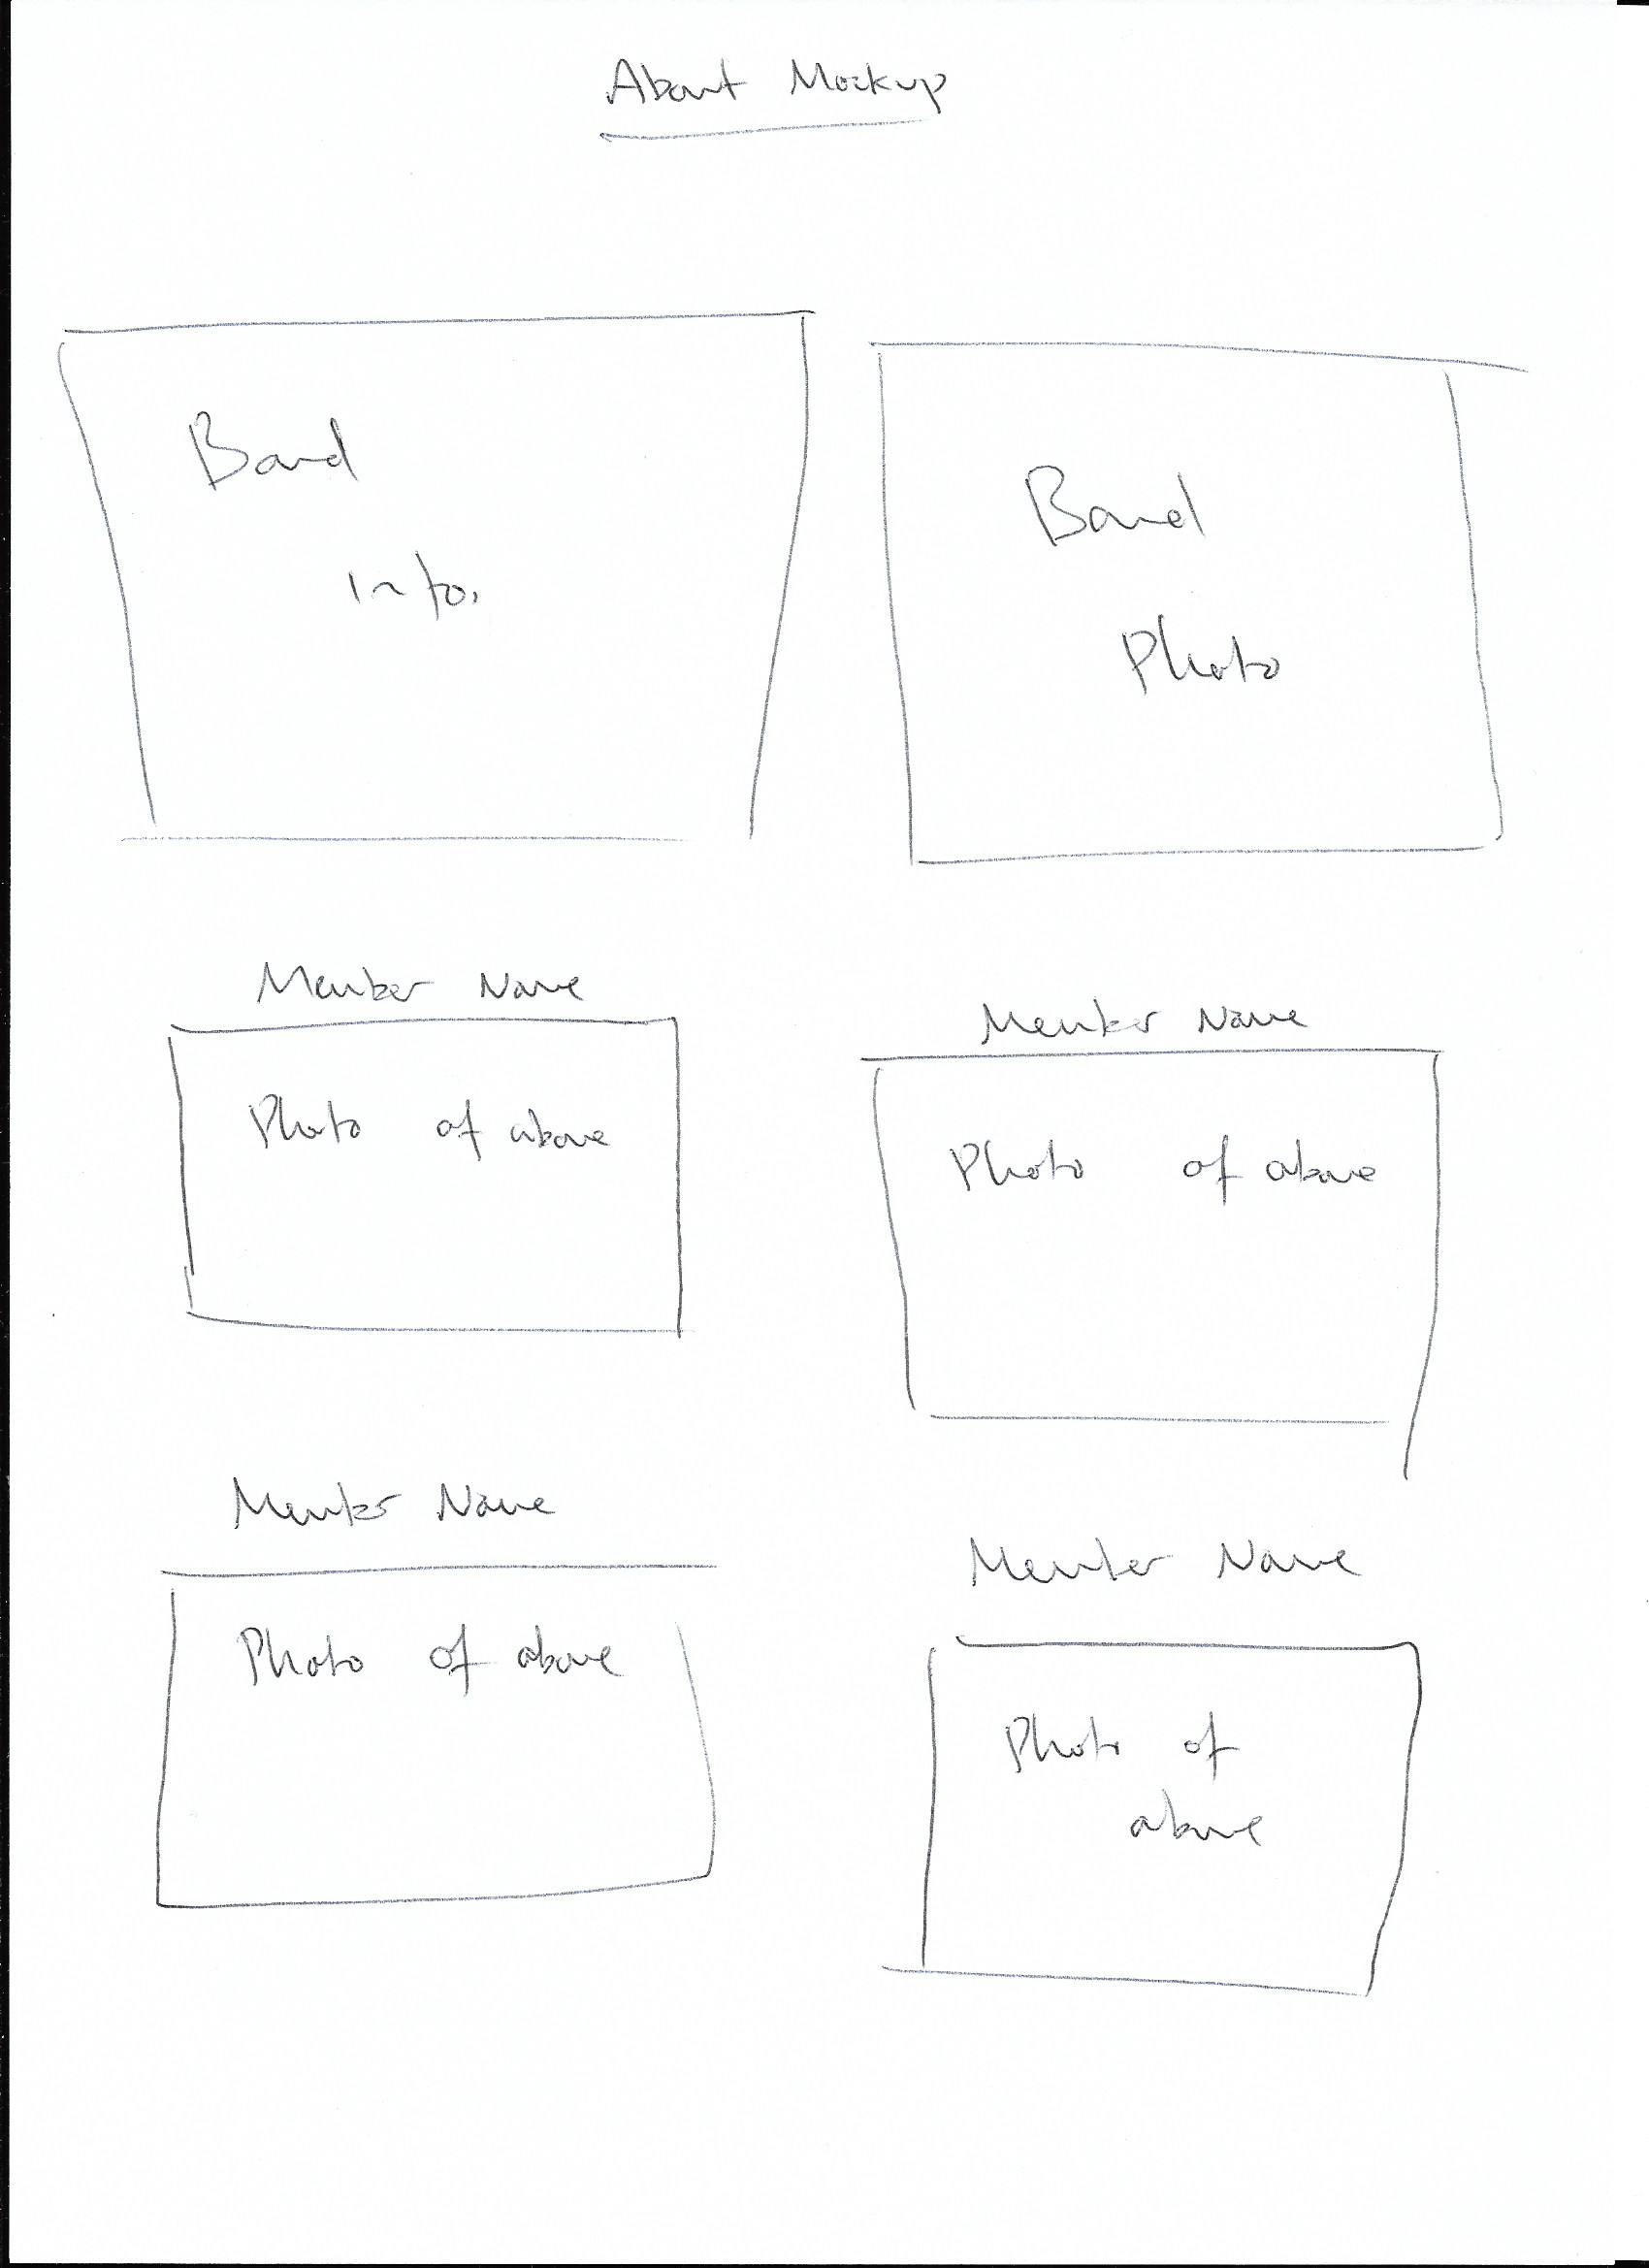 About Mockup
Band
Info.
Band
Photo
Member Name
Photo of above
Member Name
Photo of above
Member Name
Photo of above
Member Name
Photo of
above